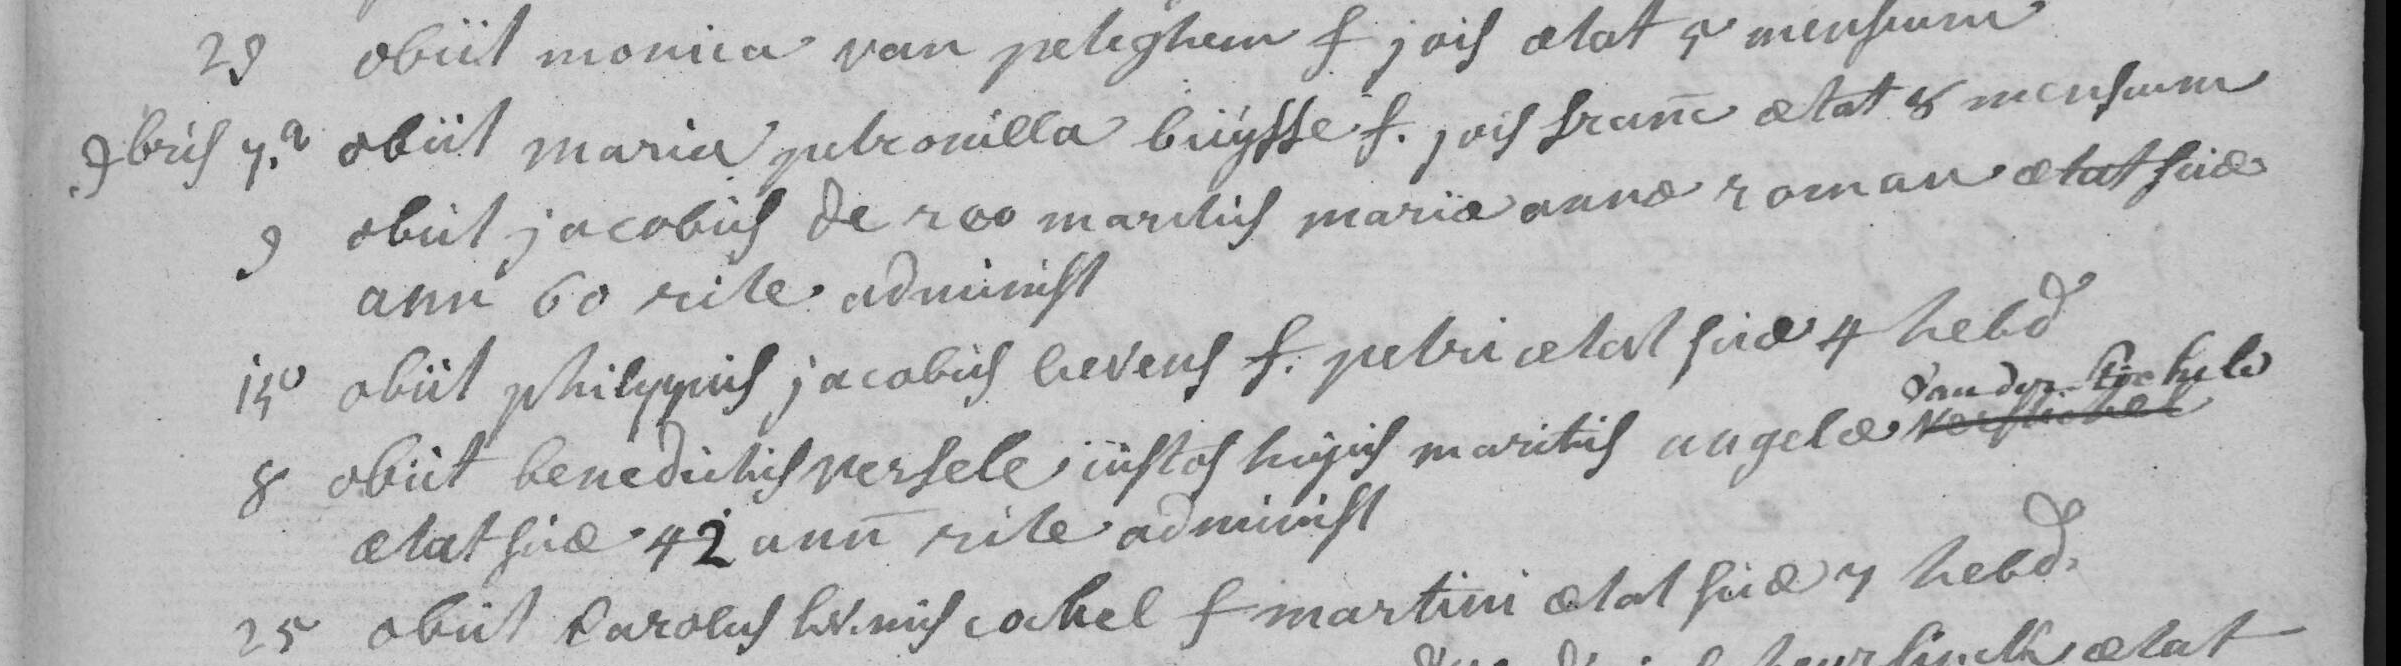 29 obiit monica van peteghem f jois ætat 5 mensium
9bris 7.a obiit maria petronilla buÿsse f. jois franc ætat 8 mensium
9 obiit jacobus de roo maritus mariæ annæ roman ætat suæ
ann 60 rite administ
15 obiit philippus jacobus lievens f. petri ætat suæ 4 hebd
van der
8 obiit benedictus versele custos hujus maritus angelæ
ætat suæ 42 ann rite administ
25 obiit Carolus livinus cabel f martini ætat suæ 7 hebd.
ætat